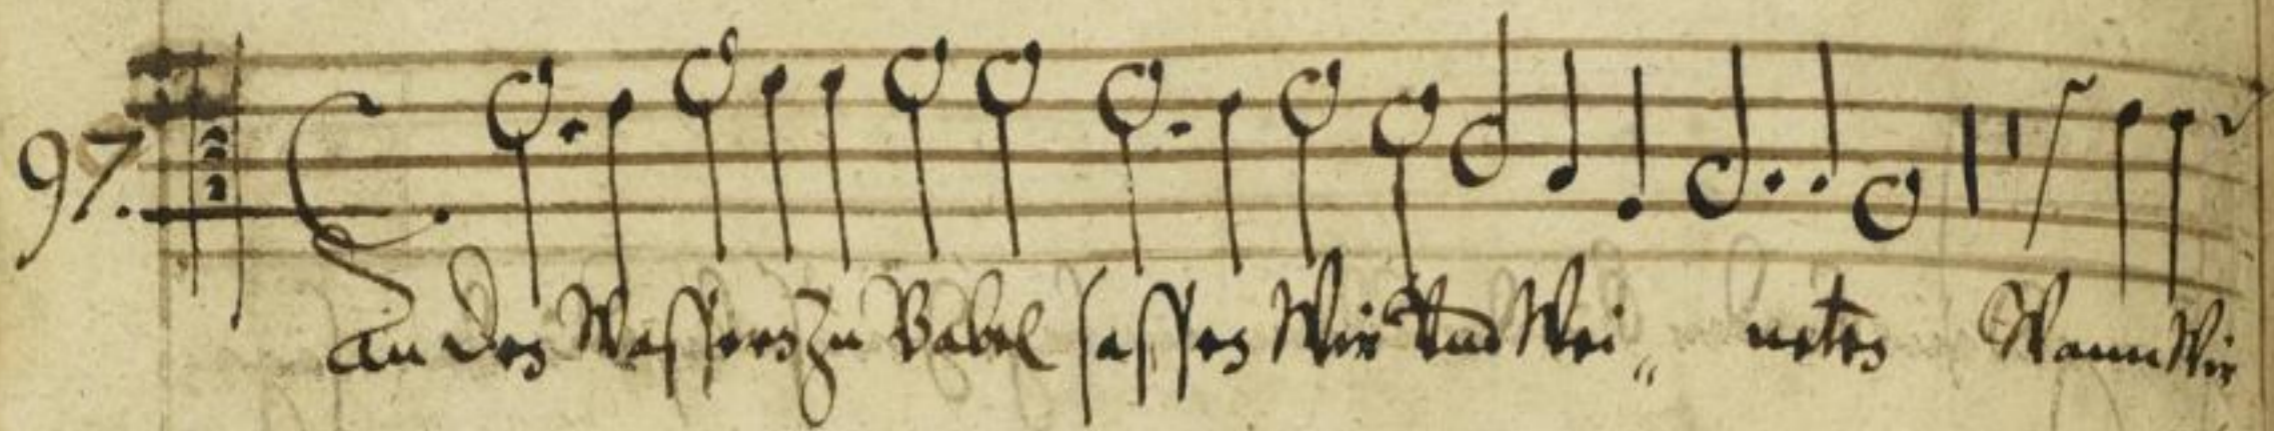 97.
An den Wassern zu Babel sassen Wir Und Wei„ neten Wann Wir